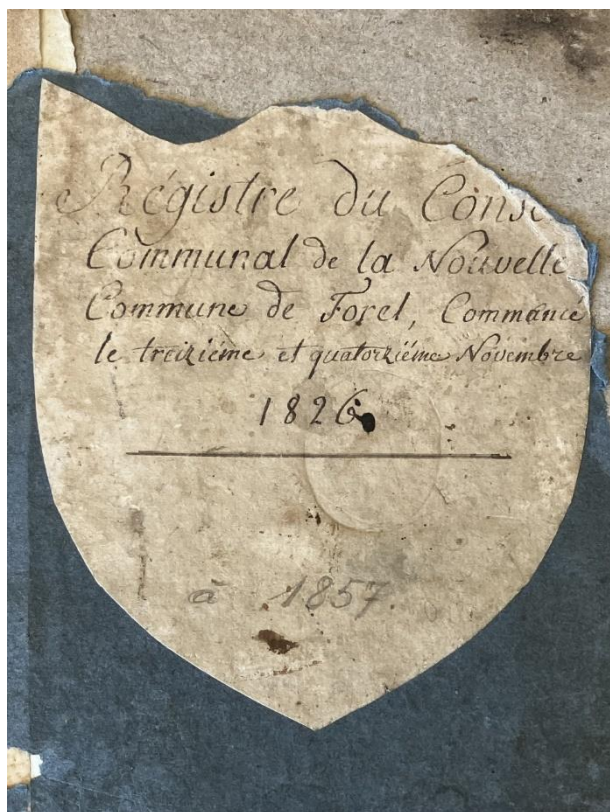 Régistre du Conse
Communal de la Nouvelle
Commune de Forel, Commance
le treiziéme et quatorziéme Novembre
1826
à 1857.